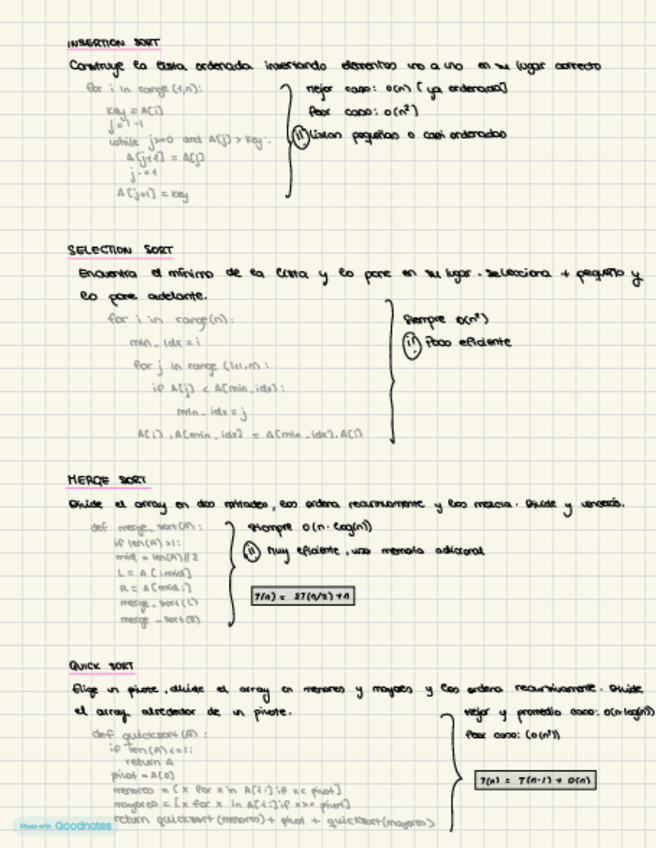 INSERTION SORT
Construye la lista ordenada insertando elementos uno a uno en su lugar correcto
for i in range (1,n):
key = A[i]
j = i-1
while j>=0 and A[j] > key:
A[j+1] = A[j]
j-=1
A[j+1] = key
Mejor caso: O(n) [ya ordenado]
Peor caso: O(n²)
Listas pequeñas o casi ordenadas
SELECTION SORT
Encuentra el mínimo de la lista y lo pone en su lugar. Selecciona + pequeño y
lo pone adelante.
for i in range(n):
min_idx = i
for j in range (i+1,n):
if A[j] < A[min_idx]:
min_idx = j
A[i], A[min_idx] = A[min_idx], A[i]
Siempre O(n²)
Poco eficiente
MERGE SORT
Divide el array en dos mitades, las ordena recursivamente y las mezcla. Divide y vencerás.
def merge_sort(A):
if len(A)>1:
mid = len(A)//2
L = A[:mid]
R = A[mid:]
merge_sort(L)
merge_sort(R)
Siempre O(n·log(n))
Muy eficiente, usa memoria adicional
T(n) = 2T(n/2) + n
QUICK SORT
Elige un pivote, divide el array en menores y mayores y los ordena recursivamente. Divide
el array alrededor de un pivote.
def quicksort(A):
if len(A)<=1:
return A
pivot = A[0]
menores = [x for x in A[1:] if x< pivot]
mayores = [x for x in A[1:] if x>= pivot]
return quicksort(menores) + pivot + quicksort(mayores)
Mejor y promedio caso: O(n·log(n))
Peor caso: (O(n²))
T(n) = T(n-1) + O(n)
Made with Goodnotes